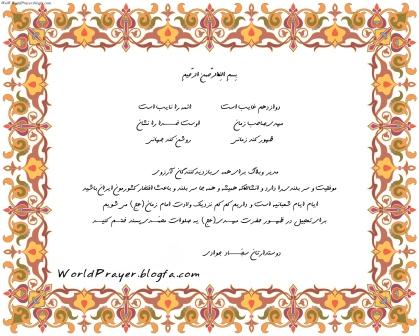 WorldPrayer.blogfa.com
بسم الله الرحمن الرحیم
دوازدهم غایب است الله را نایب است
مهدی صاحب زمان اوست خدا را نشان
ظهور کند زمانی روشن کند جهانی
مدیر وبلاگ برای همه ی بازدیدکنندگان آرزوی
موفقیت و سر بلندی را دارد و انشاالله همیشه و همه جا سر بلند و باعث افتخار کشورمون ایران باشید
ایام ایام شعبانیه است و داریم کم کم نزدیک ولادت امام زمان(عج) می شویم
برای تعجیل در ظهور حضرت مهدی(عج) به صلوات محمدی پسند ختم کنید
دوستدارتان سجاد جوادی
WorldPrayer.blogfa.com